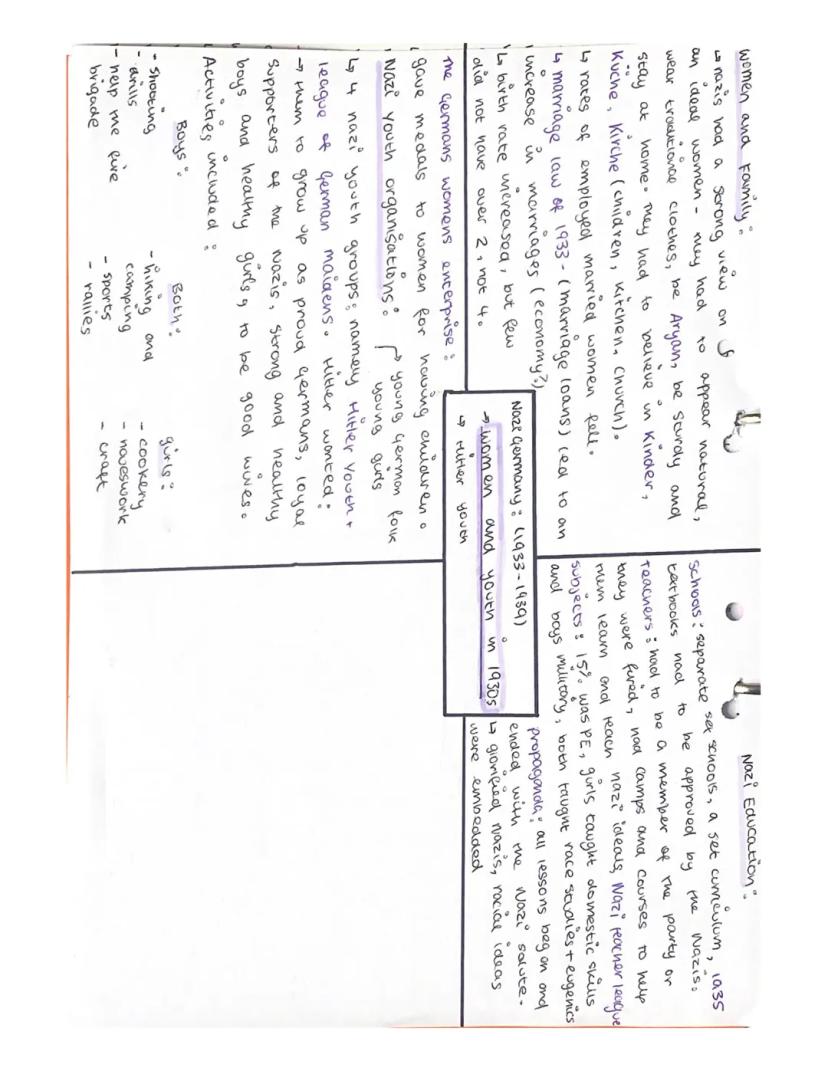 women and Family:
↳ nazis had a strong view on
an ideal women - they had to appear natural,
wear traditional clothes, be Aryan, be sturdy and
stay at home. They had to believe in Kinder,
Küche, Kirche (children, kitchen, church).
↳ rates of employed married women fell.
↳ marriage law of 1933 - (marriage loans) led to an
increase in marriages (economy?)
↳ birth rate increased, but few
did not have over 2, not 4.
The Germans womens enterprise:
gave medals to women for having children.
Nazi Youth organisations: → young German folk
young girls
↳ 4 nazi youth groups: namely Hitler Youth +
league of German maidens. Hitler wanted:
→ them to grow up as proud Germans, loyal
supporters of the Nazis, strong and healthy
boys and healthy girls, to be good wives.
Activities included:
Boys:
- shooting
- drills
- help the fire
brigade
Both:
- hiking and
camping
- sports
- rallies
girls:
- cookery
- housework
- craft
Nazi Germany: (1933-1939)
→ women and youth in 1930s
→ Hitler youth
Nazi Education:
schools: separate sex schools, a set curriculum, 1935
textbooks had to be approved by the Nazis.
Teachers: had to be a member of the party or
they were fired, had camps and courses to help
them learn and teach nazi ideals, Nazi teacher league
subjects: 15% was PE, girls taught domestic skills
and boys military, both taught race studies + eugenics
propaganda: all lessons began and
ended with the Nazi salute.
↳ glorified Nazis, racial ideas
were embedded